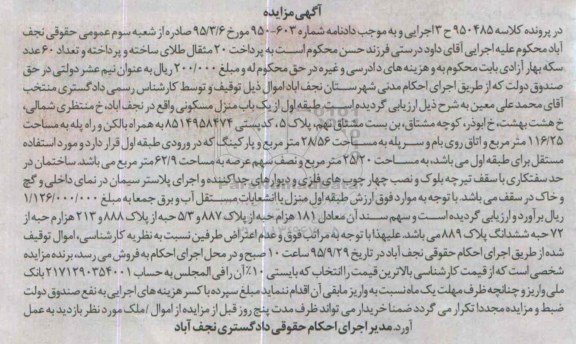 آگهی مزایده
در پرونده کلاسه ۹۵۰۴۸۵ ح ۳ اجرایی و به موجب دادنامه شماره ۶۰۳-۹۵۰ مورخ ۹۵/۳/۶ صادره از شعبه سوم عمومی حقوقی نجف
آباد محکوم علیه اجرایی آقای داود درستی فرزند حسن محکوم است به پرداخت ۲۰ مثقال طلای ساخته و پرداخته و تعداد ۶۰ عدد
سکه بهار آزادی بابت محکوم به و هزینه های دادرسی و غیره در حق محکوم له و مبلغ ۲۰۰/۰۰۰ ریال به عنوان نیم عشر دولتی در حق
صندوق دولت که از طریق اجرای احکام مدنی شهرستان نجف آباد اموال ذیل توقیف و توسط کارشناس رسمی دادگستری منتخب
آقای محمدعلی معین به شرح ذیل ارزیابی گردیده است. طبقه اول از یک باب منزل مسکونی واقع در نجف آباد، خ منتظری شمالی،
خ هشت بهشت، خ ابوذر، کوچه مشتاق، بن بست مشتاق نهم، پلاک ۵، کدپستی ۸۵۱۴۹۵۸۴۷۴ به همراه بالکن و راه پله به مساحت
۱۱۶/۲۵ متر مربع و اتاق روی بام و سرپله به مساحت ۲۸/۵۶ متر مربع و پارکینگ که در ورودی طبقه اول قرار دارد و مورد استفاده
مستقل برای طبقه اول می باشد، به مساحت ۲۵/۲۰ متر مربع و نصف سهم عرصه به مساحت ۶۲/۹ متر مربع می باشد. ساختمان در
حد سفتکاری با سقف تیرچه بلوک و نصب چهار چوب های فلزی و دیوارهای جداکننده و اجرای پلاستر سیمان در نمای داخلی و گچ
و خاک در سقف می باشد. با توجه به موارد فوق ارزش طبقه اول منزل با انشعابات مستقل آب و برق جمعا به مبلغ ۱/۱۳۶/۰۰۰/۰۰۰
ریال برآورد و ارزیابی گردیده است و سهم سند آن معادل ۱۸۱ هزام حبه از پلاک ۸۸۷ و ۵/۳ حبه از پلاک ۸۸۸ و ۲۱۳ هزارم حبه از
۷۲ حبه ششدانگ پلاک ۸۸۹ می باشد. علیهذا با توجه به مراتب فوق و عدم اعتراض طرفین نسبت به نظریه کارشناسی، اموال توقیف
شده از طریق اجرای احکام حقوقی نجف آباد در تاریخ ۹۵/۹/۲۹ ساعت ۱۰ صبح و در محل اجرای احکام به فروش می رسد، برنده مزایده
شخصی است که از قیمت کارشناسی بالاترین قیمت را انتخاب که بایستی ۱۰٪ آن را فی المجلس به حساب ۲۱۷۱۲۹۰۳۵۴۰۰۱ بانک
ملی واریز و چنانچه ظرف مهلت یک ماه نسبت به واریز مابقی آن اقدام ننماید مبلغ سپرده با کسر هزینه های اجرایی به نفع صندوق دولت
ضبط و مزایده مجددا تکرار می گردد ضمنا خریدار می تواند ظرف مدت پنج روز قبل از مزایده از اموال/ملک مورد نظر بازدید به عمل
آورد. مدیر اجرای احکام حقوقی دادگستری نجف آباد